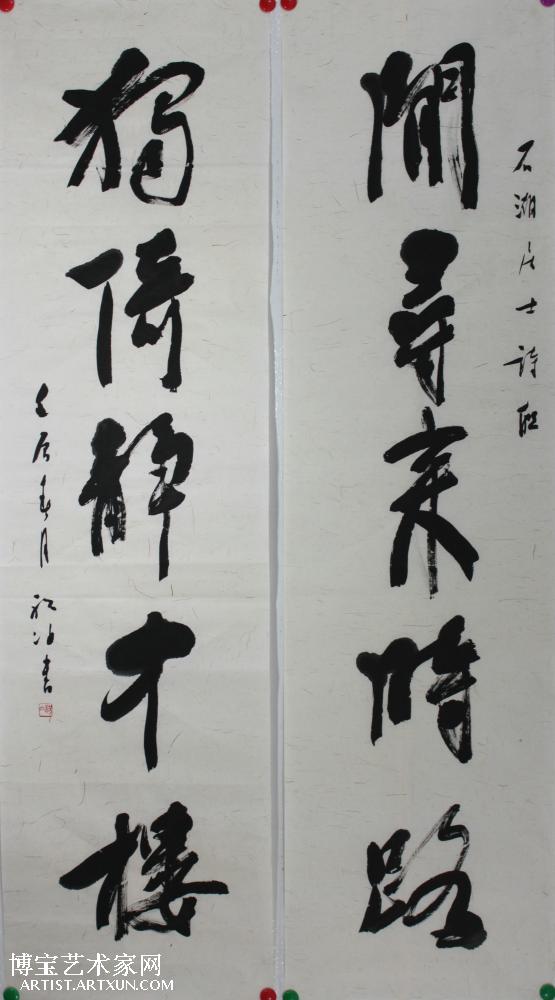 石湖居士詩聯
閒尋來時路
獨倚靜樓
壬辰春月 書
博宝艺术家网
ARTIST.ARTXUN.COM